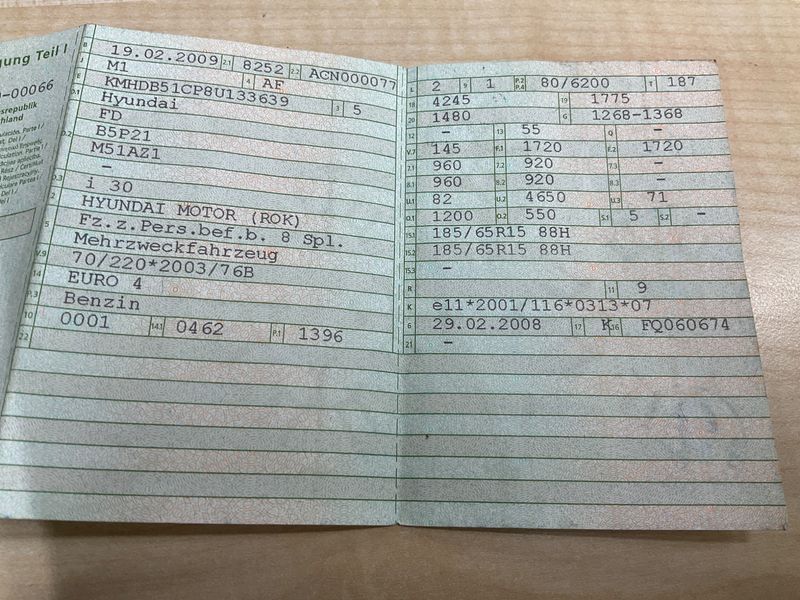 gung Teil I
-00066
srepublik
hland
B 19.02.2009 2.1 8252 2.2 ACN000077
J M1 4 AF
E KMHDB51CP8U133639 3 5
D.1 Hyundai
FD
D.2 B5P21
M51AZ1
–
D.3 i 30
2 HYUNDAI MOTOR (ROK)
5 Fz.z.Pers.bef.b. 8 Spl.
Mehrzweckfahrzeug
V.9 70/220*2003/76B
14 EURO 4
P.3 Benzin
10 0001 14.1 0462 P.1 1396
22
L 2 9 1 P.2 P.4 80/6200 T 187
18 4245 19 1775
20 1480 G 1268-1368
12 – 13 55 Q –
V.7 145 F.1 1720 F.2 1720
7.1 960 7.2 920 7.3 –
8.1 960 8.2 920 8.3 –
U.1 82 U.2 4650 U.3 71
O.1 1200 O.2 550 S.1 5 S.2 –
15.1 185/65R15 88H
15.2 185/65R15 88H
15.3 –
R 11 9
K e11*2001/116*0313*07
6 29.02.2008 17 K 16 FQ060674
21 –